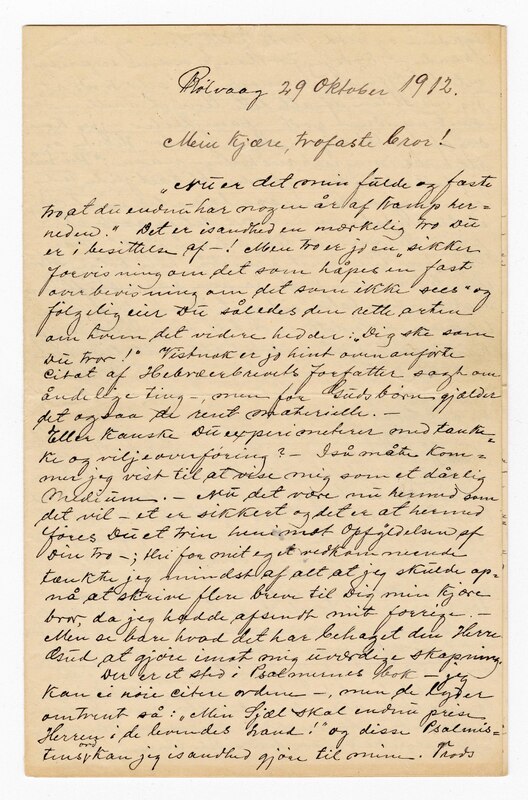 Rölvaag 29 Oktober 1912.
Mein kjære, trofaste bror!
"Nu er det min fulde og faste
tro at du endnu har nogen år af kamp her-
neden." Det er isandhed en mærkelig tro Du
er i besittelse af –! Men tro er jo en "sikker
forvisning om det som håpes en fast
overbevisning om det som ikke sees" og
følgelig eier Du således den rette arten
om hvem det videre hedder: "Dig ske som
Du tror!" Vistnok er jo hint ovenanförte
Citat af Hebræerbrevets forfatter sagt om
åndelige ting –, men for Guds børn gjælder
det ogsaa de rent materielle. –
Eller kanske Du experimenterer med tanke-
ke og viljeoverföring? – I så måte kom-
mer jeg vist til at vise mig som et dårlig
Medium. – Nu det være nu hermed som
det vil – et er sikkert og det er at hermed
föres Du et trin henimot Opfyldelsen af
Din tro –; thi for mit eget vedkommende
tænkte jeg mindst af alt at jeg skulde op-
nå at skrive flere breve til Dig min kjære
bror, da jeg hadde afsendt mit forrige. –
Men se bare hvad det har behaget den Herre
Gud at gjøre imot mig uværdige skapning.
Der er et sted i Psalmernes bok – jeg
kan ei nöie citere ordene –, men de lyder
omtrent så: "Min Sjæl skal endnu prise
Herren i de levendes land!" og disse Psalmis-
tens ord kan jeg isandhed gjöre til mine. Trods